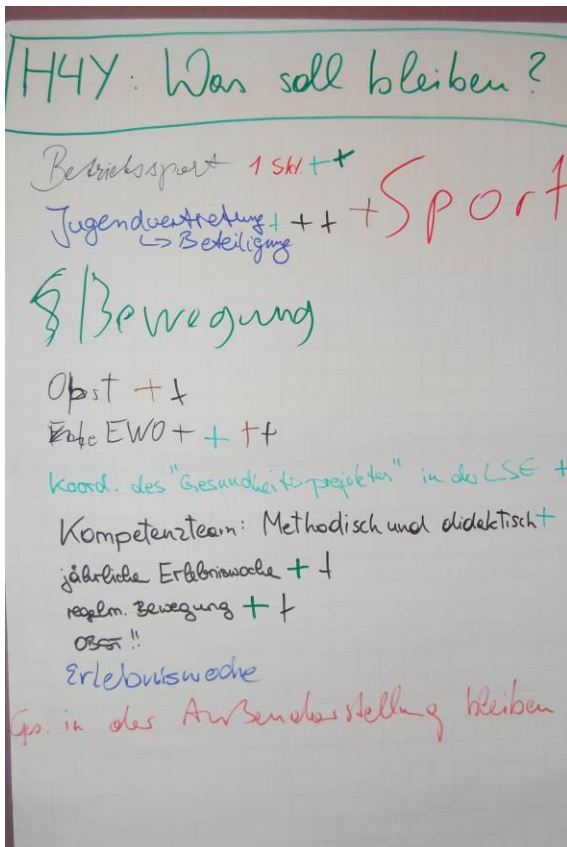 H4Y: Was soll bleiben?
Betriebssport 1 Skl. + +
Jugendvertretung + + + + Sport
↳ Beteiligung
Bewegung
Obst + +
EWO + + + +
Koord. des "Gesundheitsprojektes" in der LSE +
Kompetenzteam: Methodisch und didaktisch +
jährliche Erlebniswoche + +
regelm. Bewegung + +
OBST !!
Erlebniswoche
in der Außendarstellung bleiben